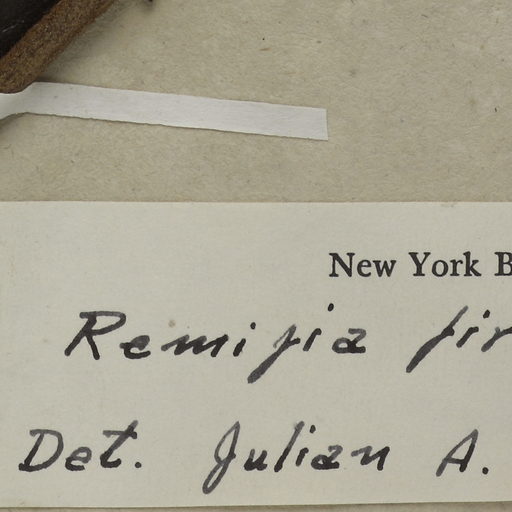 New York B
Remijia fir
Det. Julian A.